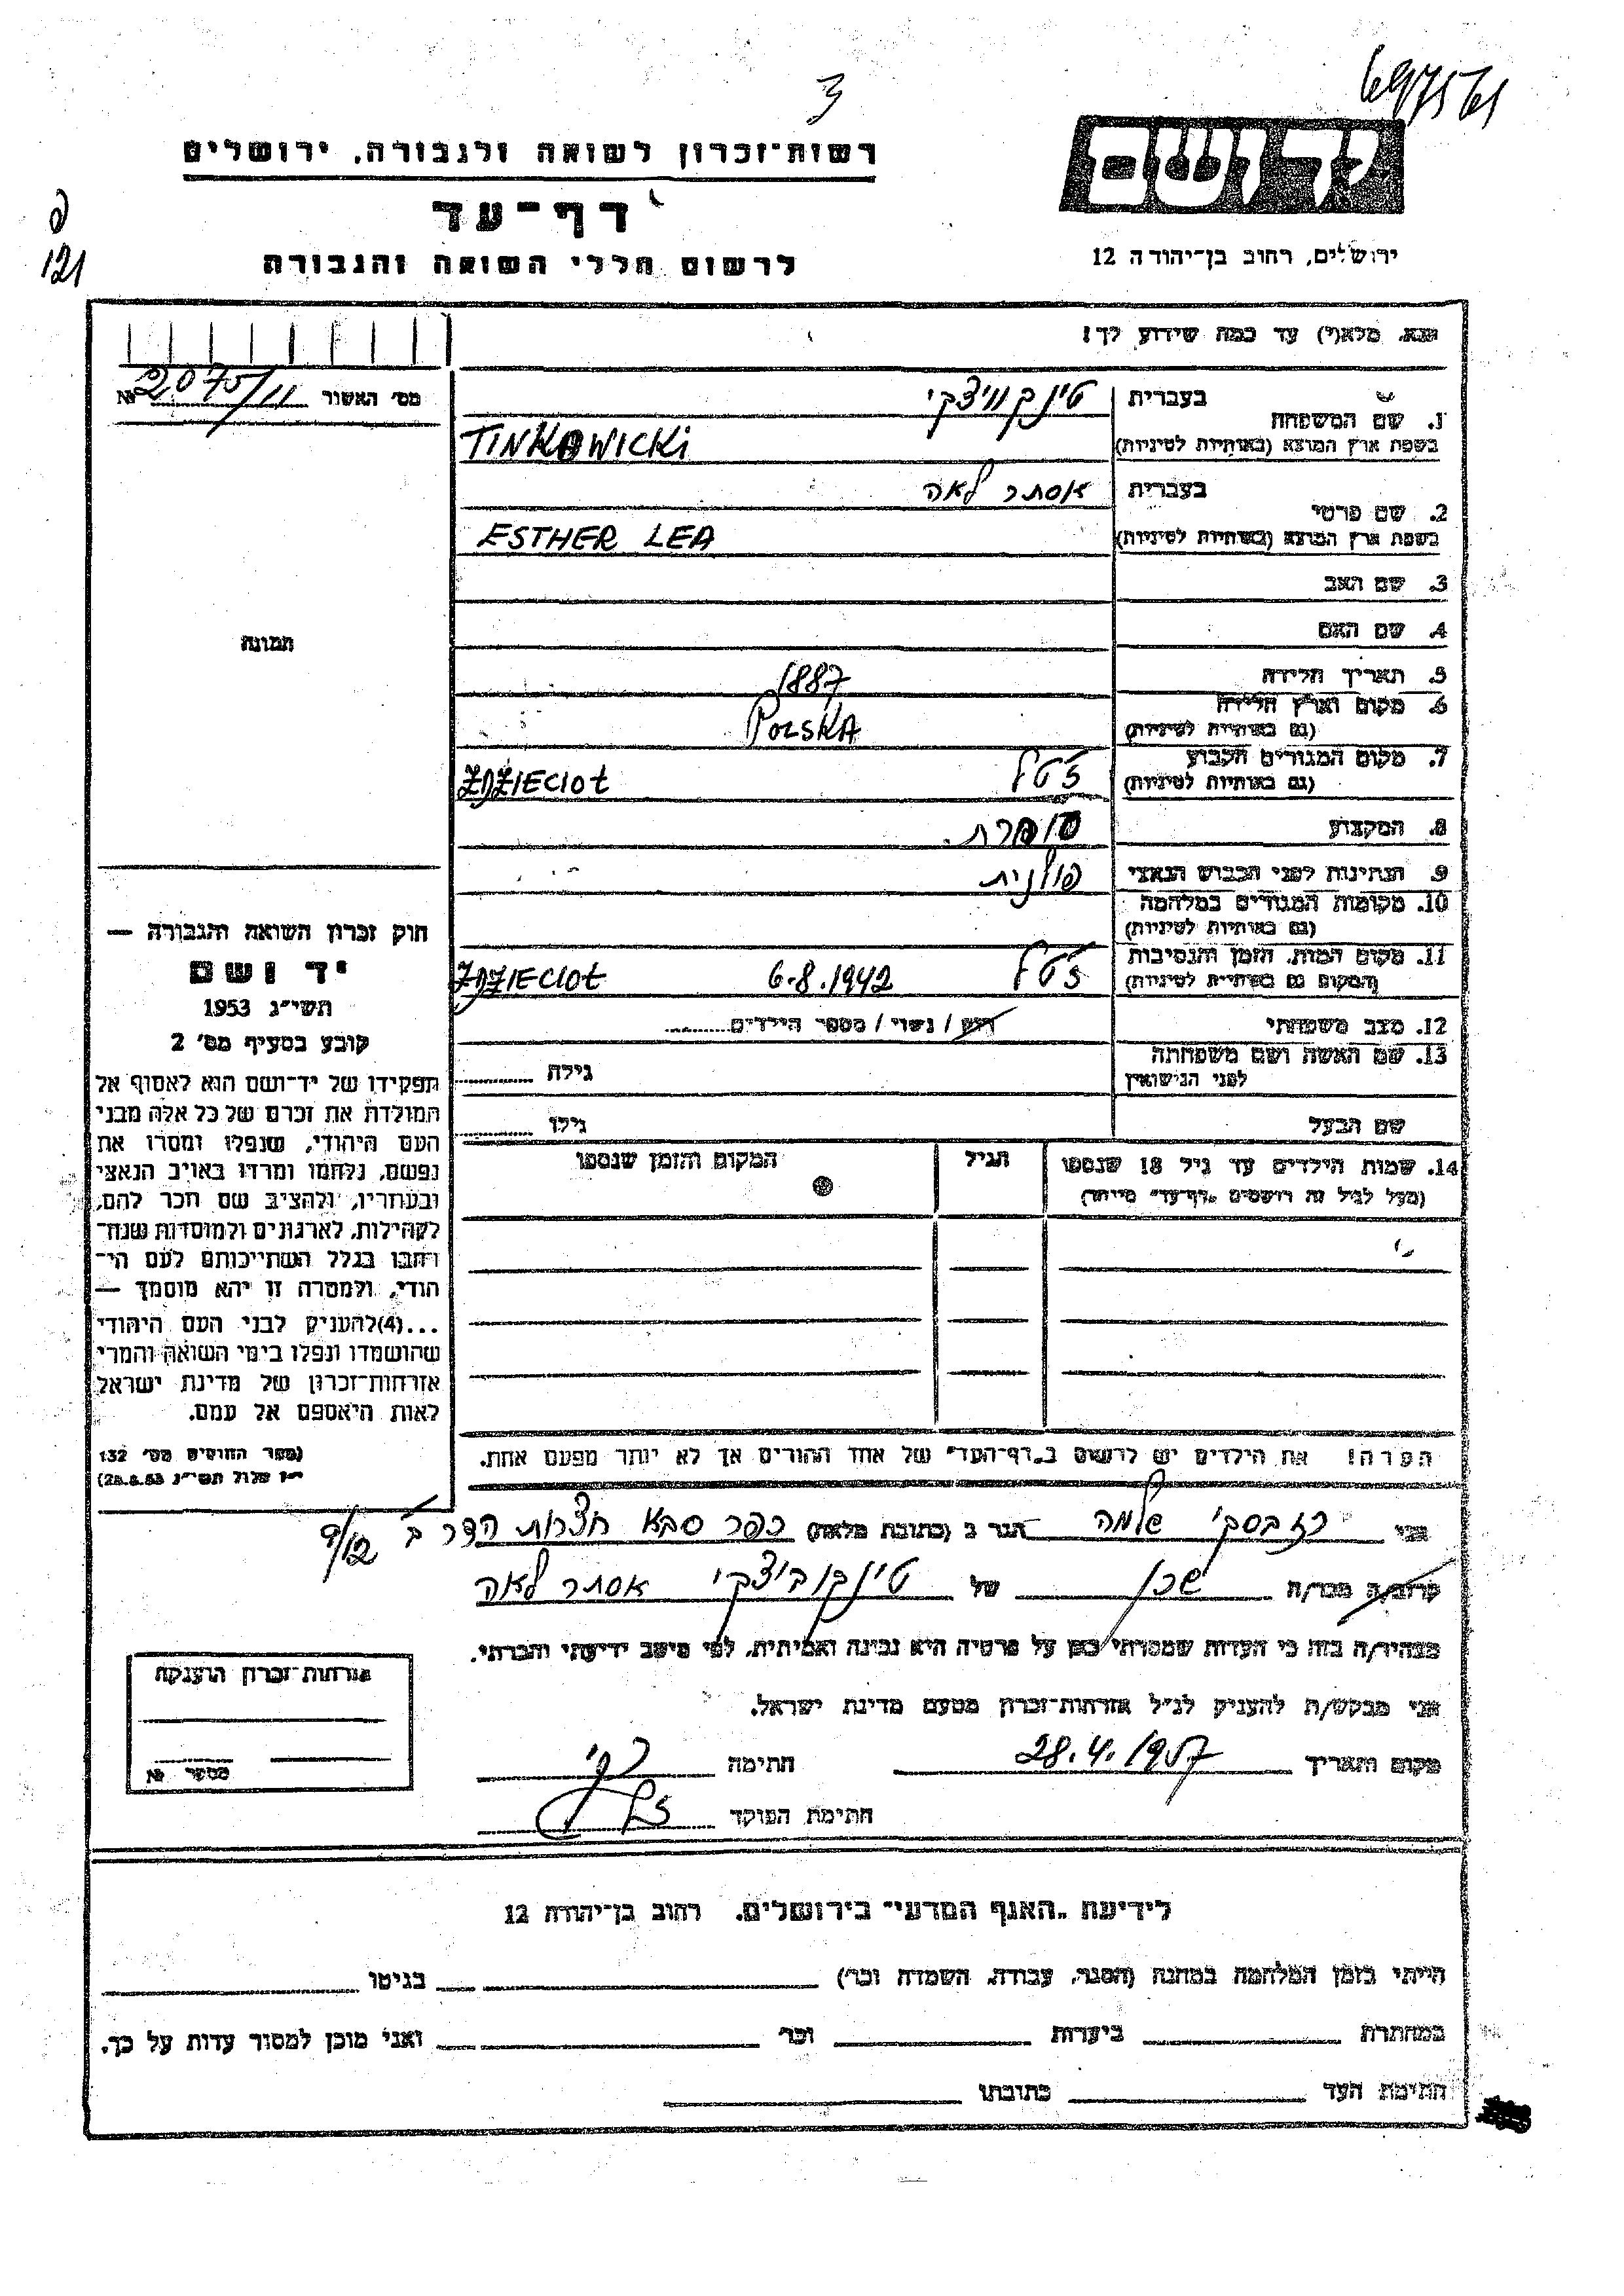 697561
3
ט
121
יד ושם
ירושלים, רחוב בן־יהודה 12
רשות־זכרון לשואה ולגבורה, ירושלים
דף־עד
לרשום חללי השואה והגבורה
נא, מלא(י) עד כמה שידוע לך!
מס׳ האשור 2075/11 №
1. שם המשפחה
בעברית טינקוויצקי
בשפת ארץ המוצא (באותיות לטיניות) TINKOWICKI
2. שם פרטי
בעברית אסתר לאה
בשפת ארץ המוצא (באותיות לטיניות) ESTHER LEA
3. שם האב
4. שם האם
תמונה
5. תאריך הלידה 1887
6. מקום וארץ הלידה
(גם באותיות לטיניות) POLSKA
7. מקום המגורים הקבוע
(גם באותיות לטיניות) ז׳טל ZDZIECIOŁ
8. המקצוע סוחרת.
9. הנתינות לפני הכבוש הנאצי פולנית
10. מקומות המגורים במלחמה
(גם באותיות לטיניות)
11. מקום המות, הזמן והנסיבות
(המקום גם באותיות לטיניות) ז׳טל 6.8.1942 ZDZIECIOŁ
12. מצב משפחתי רווק / נשוי / מספר הילדים
13. שם האשה ושם משפחתה
לפני הנישואין
גילה
שם הבעל
גילו
14. שמות הילדים עד גיל 18 שנספו
(מעל לגיל זה רושמים „דף־עד״ מיוחד)
הגיל
המקום והזמן שנספו
הערה! את הילדים יש לרשום ב„דף־העד״ של אחד ההורים אך לא יותר מפעם אחת.
חוק זכרון השואה והגבורה —
יד ושם
תשי״ג 1953
קובע בסעיף מס׳ 2
תפקידו של יד־ושם הוא לאסוף אל
המולדת את זכרם של כל אלה מבני
העם היהודי, שנפלו ומסרו את
נפשם, נלחמו ומרדו באויב הנאצי
ובעוזריו, ולהציב שם וזכר להם,
לקהילות, לארגונים ולמוסדות שנח־
רבו בגלל השתייכותם לעם הי־
הודי, ולמטרה זו יהא מוסמך —
...(4)להעניק לבני העם היהודי
שהושמדו ונפלו בימי השואה והמרי
אזרחות־זכרון של מדינת ישראל
לאות היאספם אל עמם.
(ספר החוקים מס׳ 132
י״ז אלול תשי״ג 28.8.53)
אני שלמה הגר ב (כתובת מלאה) כפר סבא חצרות הדר ב׳ 9/12
קרוב/ה מכר/ה שכן של טינקוביצקי אסתר לאה
מצהיר/ה בזה כי העדות שמסרתי כאן על פרטיה היא נכונה ואמיתית, לפי מיטב ידיעתי והכרתי.
אני מבקש/ת להעניק לנ״ל אזרחות־זכרון מטעם מדינת ישראל.
מקום ותאריך 28.4.1957 חתימה
חתימת הפוקד
אזרחות־זכרון הוענקה
מספר №
לידיעת „האגף המדעי״ בירושלים, רחוב בן־יהודה 12
הייתי בזמן המלחמה במחנה (הסגר, עבודה, השמדה וכו׳) בגיטו
במחתרת ביערות וכו׳ ואני מוכן למסור עדות על כך.
חתימת העד כתובתו